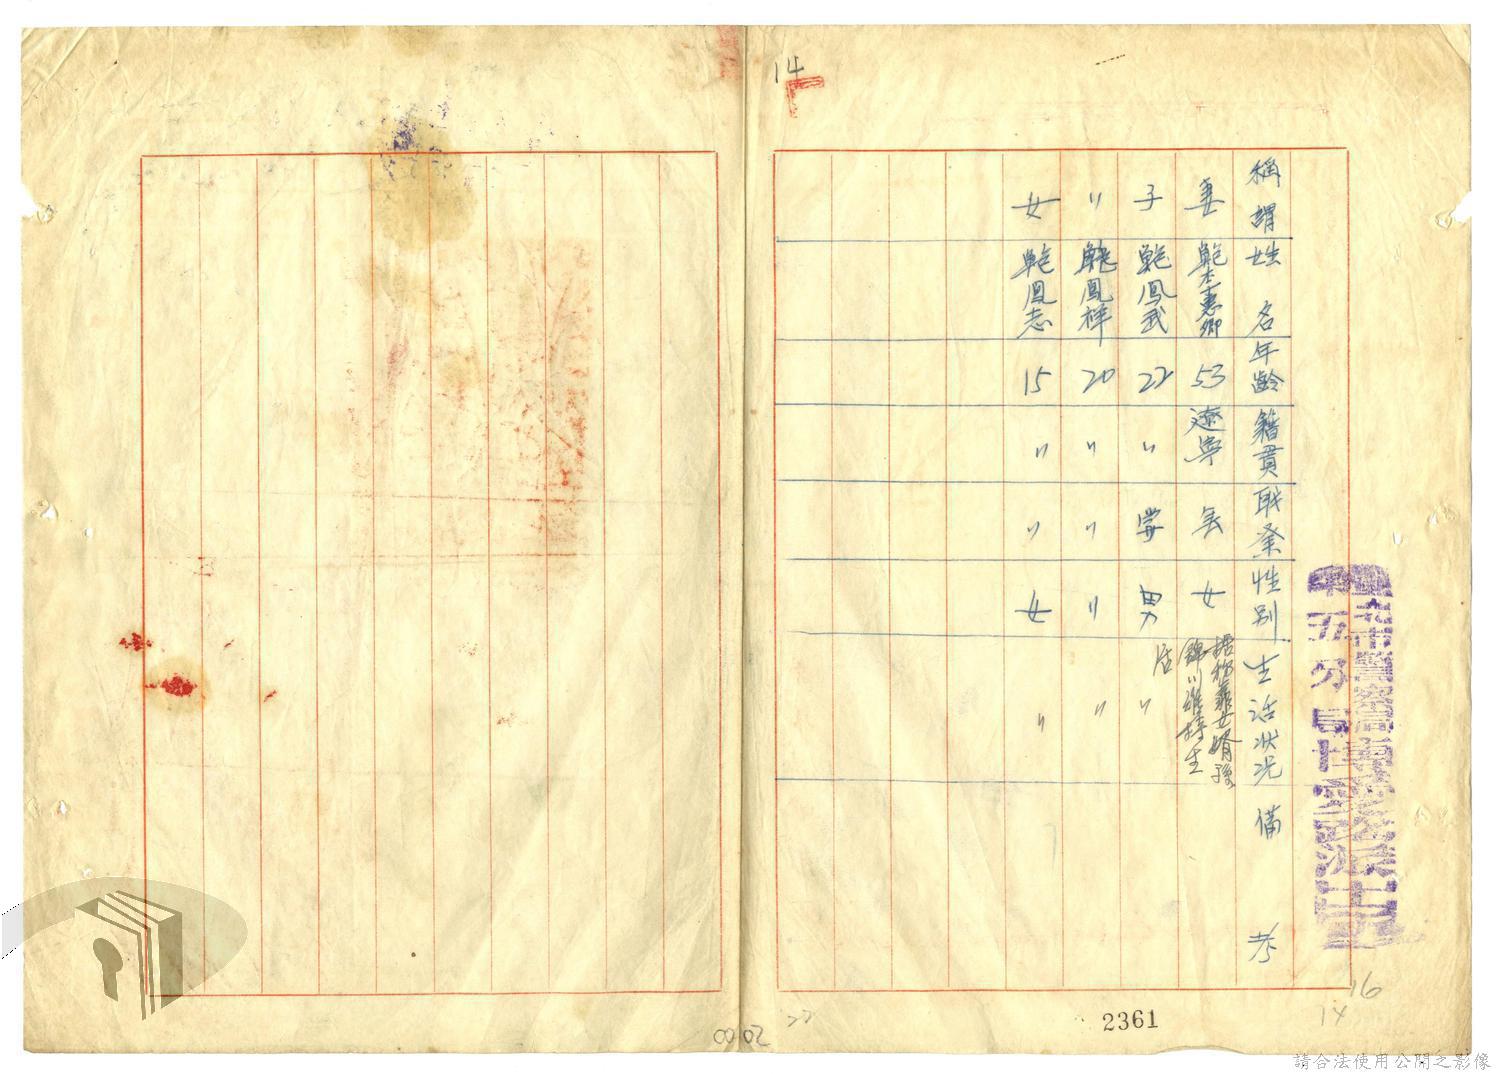 14
稱謂 姓名 年齡 籍貫 職業 性別 生活狀況 備考
妻 鮑李惠卿 53 遼寧 無 女 據稱靠女婿孫錦川維持生活
子 鮑鳳武 22 〃 學 男 〃
〃 鮑鳳祥 20 〃 〃 〃 〃
女 鮑鳳志 15 〃 〃 女 〃
2361
16
14
77
00 02
請合法使用公開之影像